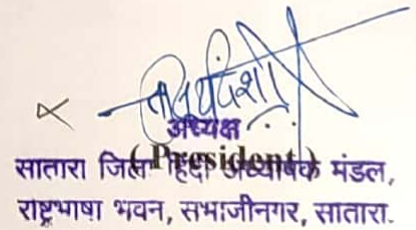 अध्यक्ष
(President)
सातारा जिल्हा हिंदी अध्यापक मंडल,
राष्ट्रभाषा भवन, सभाजीनगर, सातारा.